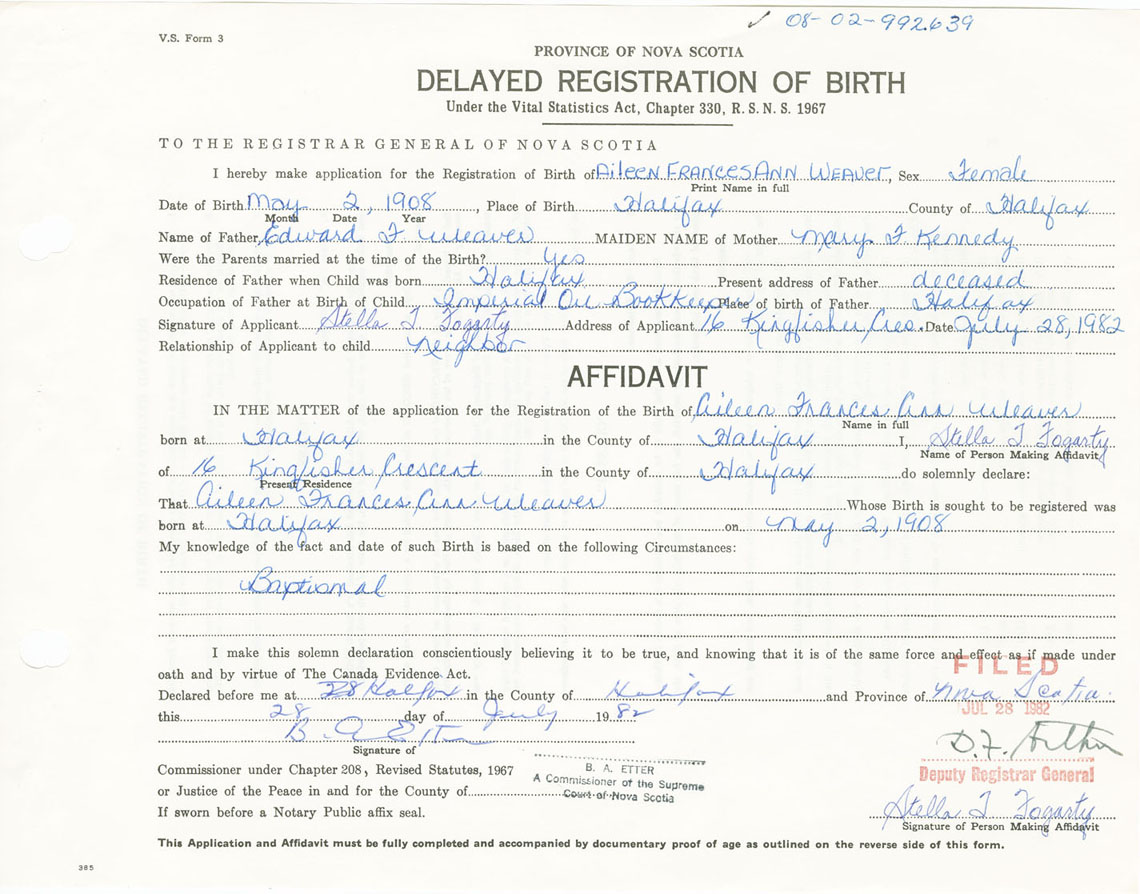 ✓ 08-02-992639
V.S. Form 3
PROVINCE OF NOVA SCOTIA
DELAYED REGISTRATION OF BIRTH
Under the Vital Statistics Act, Chapter 330, R.S.N.S. 1967
TO THE REGISTRAR GENERAL OF NOVA SCOTIA
I hereby make application for the Registration of Birth of Aileen Frances Ann Weaver, Sex Female
Print Name in full
Date of Birth May 2, 1908, Place of Birth Halifax County of Halifax
Month Date Year
Name of Father Edward F Weaver MAIDEN NAME of Mother Mary F Kennedy
Were the Parents married at the time of the Birth? Yes
Residence of Father when Child was born Halifax Present address of Father deceased
Occupation of Father at Birth of Child Imperial Oil Bookkeeper Place of birth of Father Halifax
Signature of Applicant Stella T Fogarty Address of Applicant 16 Kingfisher Cres. Date July 28, 1982
Relationship of Applicant to child neighbor
AFFIDAVIT
IN THE MATTER of the application for the Registration of the Birth of Aileen Frances Ann Weaver
Name in full
born at Halifax in the County of Halifax I, Stella T Fogarty
Name of Person Making Affidavit
of 16 Kingfisher Crescent in the County of Halifax do solemnly declare:
Present Residence
That Aileen Frances Ann Weaver Whose Birth is sought to be registered was
born at Halifax on May 2, 1908
My knowledge of the fact and date of such Birth is based on the following Circumstances:
Baptismal
I make this solemn declaration conscientiously believing it to be true, and knowing that it is of the same force and effect as if made under
oath and by virtue of The Canada Evidence Act.
FILED
Declared before me at Halifax in the County of Halifax and Province of Nova Scotia.
this 28 day of July 1982
JUL 28 1982
B. A. Etter
Signature of
D.F.
Commissioner under Chapter 208, Revised Statutes, 1967
B. A. ETTER
A Commissioner of the Supreme
Court of Nova Scotia
Deputy Registrar General
or Justice of the Peace in and for the County of
Stella T Fogarty
If sworn before a Notary Public affix seal.
Signature of Person Making Affidavit
This Application and Affidavit must be fully completed and accompanied by documentary proof of age as outlined on the reverse side of this form.
385